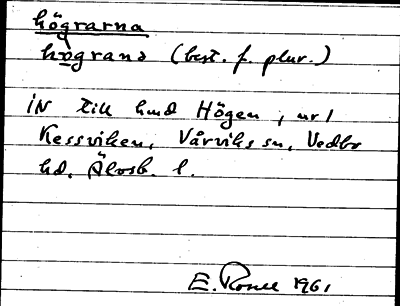 högrarna
högrana (best. f. plur.)
IN till hmd Högen, nr 1
Kessviken, Vårviks sn, Vedbo
hd. Älvsb. l.
E. 1961